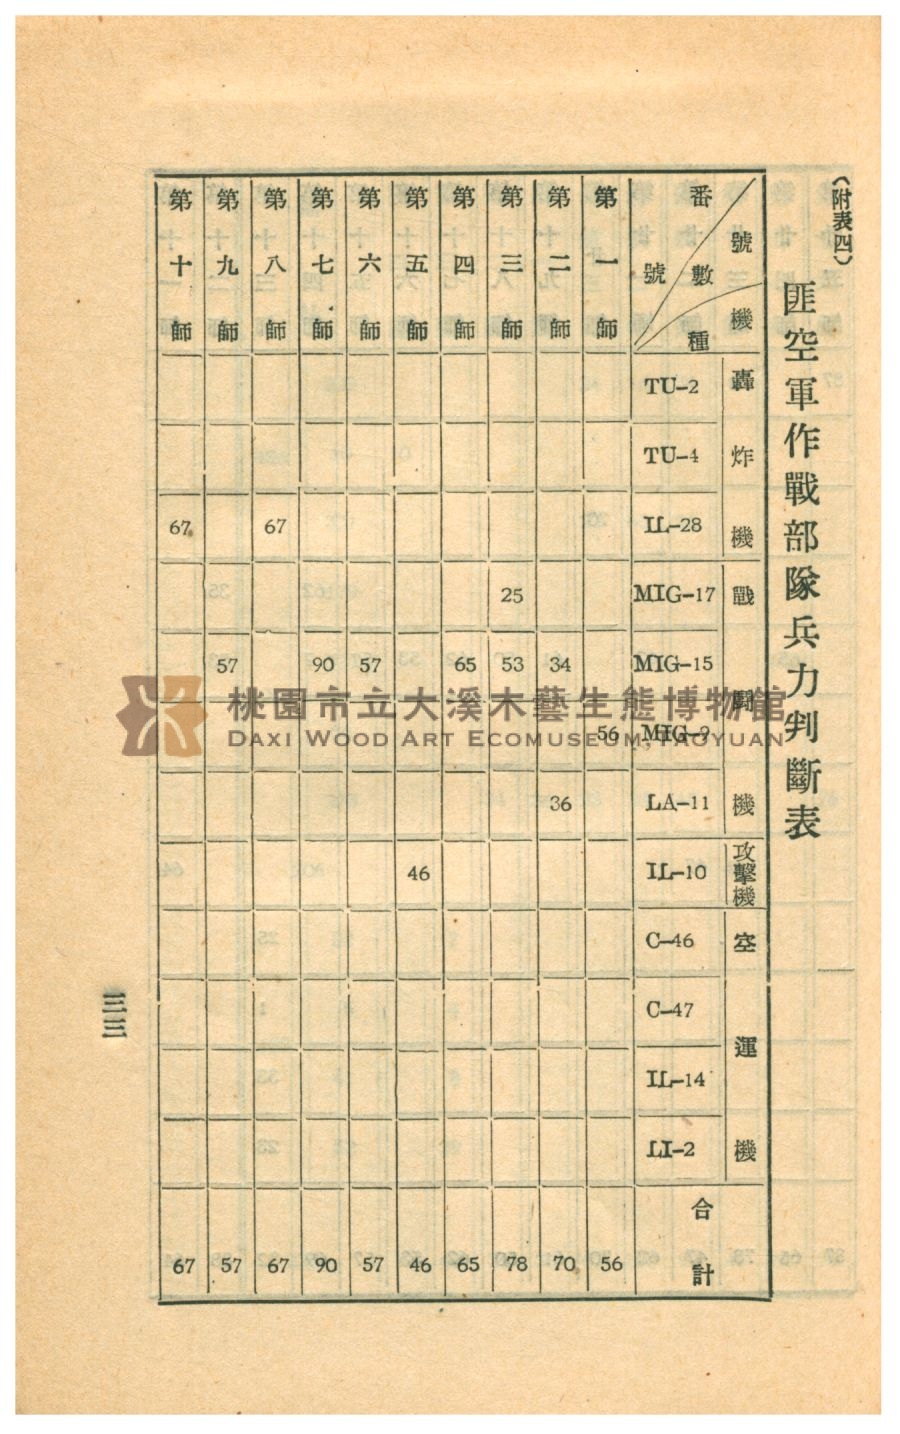 （附表四）
匪空軍作戰部隊兵力判斷表
番號 號數 機種
轟炸機 TU-2 TU-4 IL-28
戰鬪機 MIG-17 MIG-15 MIG-9 LA-11
攻擊機 IL-10
空運機 C-46 C-47 IL-14 LI-2
合計
第一師 56 56
第二師 34 36 70
第三師 25 53 78
第四師 65 65
第五師 46 46
第六師 57 57
第七師 90 90
第八師 67 67
第九師 57 57
第十師 67 67
三三
桃園市立大溪木藝生態博物館
DAXI WOOD ART ECOMUSEUM, TAOYUAN